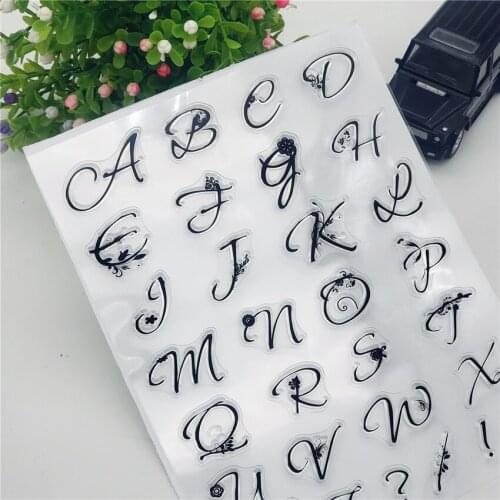 A B C D
E F G H
I J K L
M N O P
Q R S T
U V W X
!